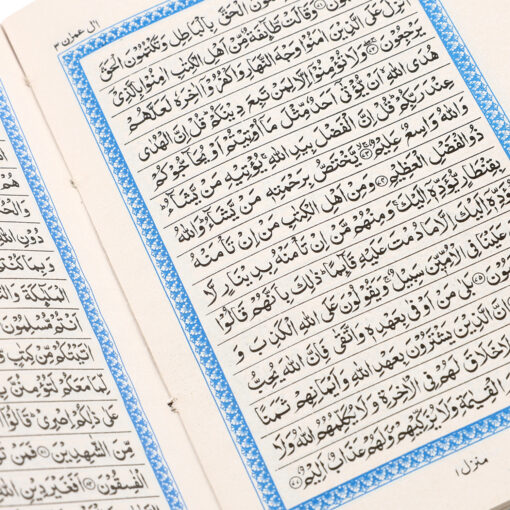 ال عمرن ٣
الْحَقَّ بِالْبَاطِلِ وَتَكْتُمُوْنَ الْحَقَّ
وَقَالَتْ طَّآئِفَةٌ مِّنْ اَهْلِ الْكِتٰبِ اٰمِنُوْا بِالَّذِيْٓ
اُنْزِلَ عَلَى الَّذِيْنَ اٰمَنُوْا وَجْهَ النَّهَارِ وَاكْفُرُوْٓا اٰخِرَهٗ لَعَلَّهُمْ
يَرْجِعُوْنَ ۷۲ وَلَا تُؤْمِنُوْٓا اِلَّا لِمَنْ تَبِعَ دِيْنَكُمْ قُلْ اِنَّ الْهُدٰى
هُدَى اللّٰهِ اَنْ يُّؤْتٰٓى اَحَدٌ مِّثْلَ مَآ اُوْتِيْتُمْ اَوْ يُحَآجُّوْكُمْ
عِنْدَ رَبِّكُمْ قُلْ اِنَّ الْفَضْلَ بِيَدِ اللّٰهِ يُؤْتِيْهِ مَنْ يَّشَآءُ
وَاللّٰهُ وَاسِعٌ عَلِيْمٌ ۷۳ يَّخْتَصُّ بِرَحْمَتِهٖ مَنْ يَّشَآءُ وَاللّٰهُ
ذُو الْفَضْلِ الْعَظِيْمِ ۷۴ وَمِنْ اَهْلِ الْكِتٰبِ مَنْ اِنْ تَاْمَنْهُ
بِقِنْطَارٍ يُّؤَدِّهٖٓ اِلَيْكَ وَمِنْهُمْ مَّنْ اِنْ تَاْمَنْهُ بِدِيْنَارٍ لَّا
يُؤَدِّهٖٓ اِلَيْكَ اِلَّا مَا دُمْتَ عَلَيْهِ قَآئِمًا ذٰلِكَ بِاَنَّهُمْ قَالُوْا
عَلَيْنَا فِي الْاُمِّيّٖنَ سَبِيْلٌ وَيَقُوْلُوْنَ عَلَى اللّٰهِ الْكَذِبَ وَ
بَلٰى مَنْ اَوْفٰى بِعَهْدِهٖ وَاتَّقٰى فَاِنَّ اللّٰهَ يُحِبُّ
اِنَّ الَّذِيْنَ يَشْتَرُوْنَ بِعَهْدِ اللّٰهِ وَاَيْمَانِهِمْ ثَمَنًا
لَا خَلَاقَ لَهُمْ فِي الْاٰخِرَةِ وَلَا يُكَلِّمُهُمُ اللّٰهُ وَلَا
الْقِيٰمَةِ وَلَا يُزَكِّيْهِمْ وَلَهُمْ عَذَابٌ اَلِيْمٌ ۷۷
منزل ۱
دُوْنِ اللّٰهِ
وَبِمَا كُنْتُمْ
الْمَلٰٓئِكَةَ وَالنَّ
اَنْتُمْ مُّسْلِمُوْنَ
اٰتَيْتُكُمْ مِّنْ كِتٰبٍ
لِّمَا مَعَكُمْ لَتُؤْمِنُنَّ بِهٖ
عَلٰى ذٰلِكُمْ اِصْرِيْ قَالُوْٓا
مِّنَ الشّٰهِدِيْنَ ۸۱ فَمَنْ
الْفٰسِقُوْنَ ۸۲ اَفَغَيْرَ دِيْنِ اللّٰهِ